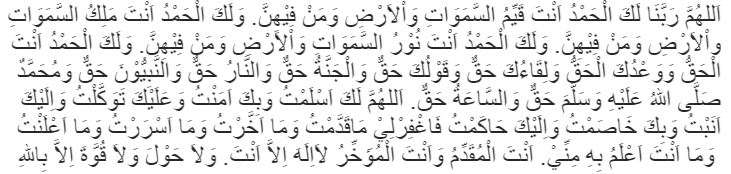 اَللهُمَّ رَبَّنَا لَكَ الْحَمْدُ اَنْتَ قَيِّمُ السَّمَوَاتِ وَالْاَرْضِ وَمَنْ فِيْهِنَّ. وَلَكَ الْحَمْدُ اَنْتَ مَلِكُ السَّمَوَاتِ
وَالْاَرْضِ وَمَنْ فِيْهِنَّ. وَلَكَ الْحَمْدُ اَنْتَ نُوْرُ السَّمَوَاتِ وَالْاَرْضِ وَمَنْ فِيْهِنَّ. وَلَكَ الْحَمْدُ اَنْتَ
الْحَقُّ وَوَعْدُكَ الْحَقُّ وَلِقَاءُكَ حَقٌّ وَقَوْلُكَ حَقٌّ وَالْجَنَّةُ حَقٌّ وَالنَّارُ حَقٌّ وَالنَّبِيُّوْنَ حَقٌّ وَمُحَمَّدٌ
صَلَّى اللهُ عَلَيْهِ وَسَلَّمَ حَقٌّ وَالسَّاعَةُ حَقٌّ. اَللهُمَّ لَكَ اَسْلَمْتُ وَبِكَ اَمَنْتُ وَعَلَيْكَ تَوَكَّلْتُ وَاِلَيْكَ
اَنَبْتُ وَبِكَ خَاصَمْتُ وَاِلَيْكَ حَاكَمْتُ فَاغْفِرْلِيْ مَاقَدَّمْتُ وَمَا اَخَّرْتُ وَمَا اَسْرَرْتُ وَمَا اَعْلَنْتُ
وَمَا اَنْتَ اَعْلَمُ بِهِ مِنِّيْ. اَنْتَ الْمُقَدِّمُ وَاَنْتَ الْمُؤَخِّرُ لاَاِلَهَ اِلاَّ اَنْتَ. وَلاَ حَوْلَ وَلاَ قُوَّةَ اِلاَّ بِاللهِ